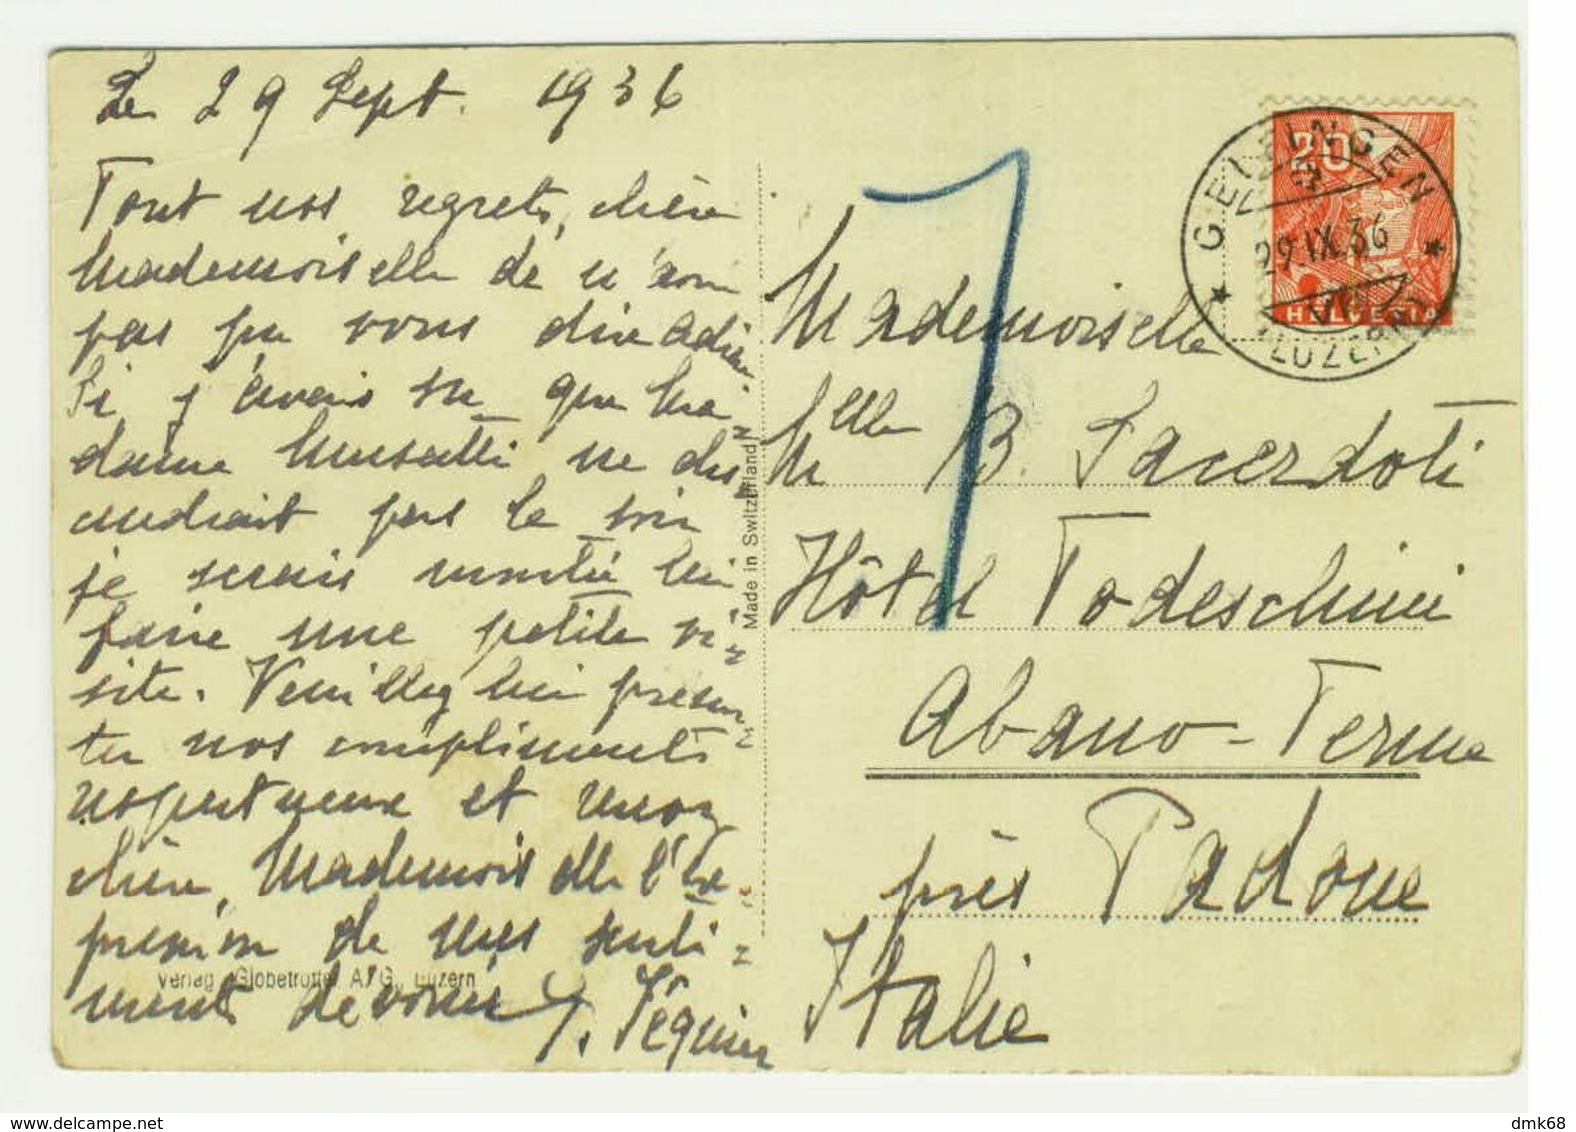 Le 29 Sept. 1936
Tout nos regrets, chère
Mademoiselle de n'avoir
pas pu vous dire adieu.
Si j'avais su que Ma-
dame Mussatti ne des-
cendrait pas le soir
je serais monté lui
faire une petite vi-
site. Veuillez lui présen-
ter nos compliments
respectueux et croyez
chère Mademoiselle l'ex-
pression de mes senti-
ments dévoués
Verlag "Globetrotter" A.G., Luzern
Made in Switzerland
GELFINGEN
29.IX.36
(LUZERN)
20
HELVETIA
Mademoiselle
Melle B. Sacerdoti
Hôtel Todeschini
Abano-Terme
près Padoue
Italie
dmk68